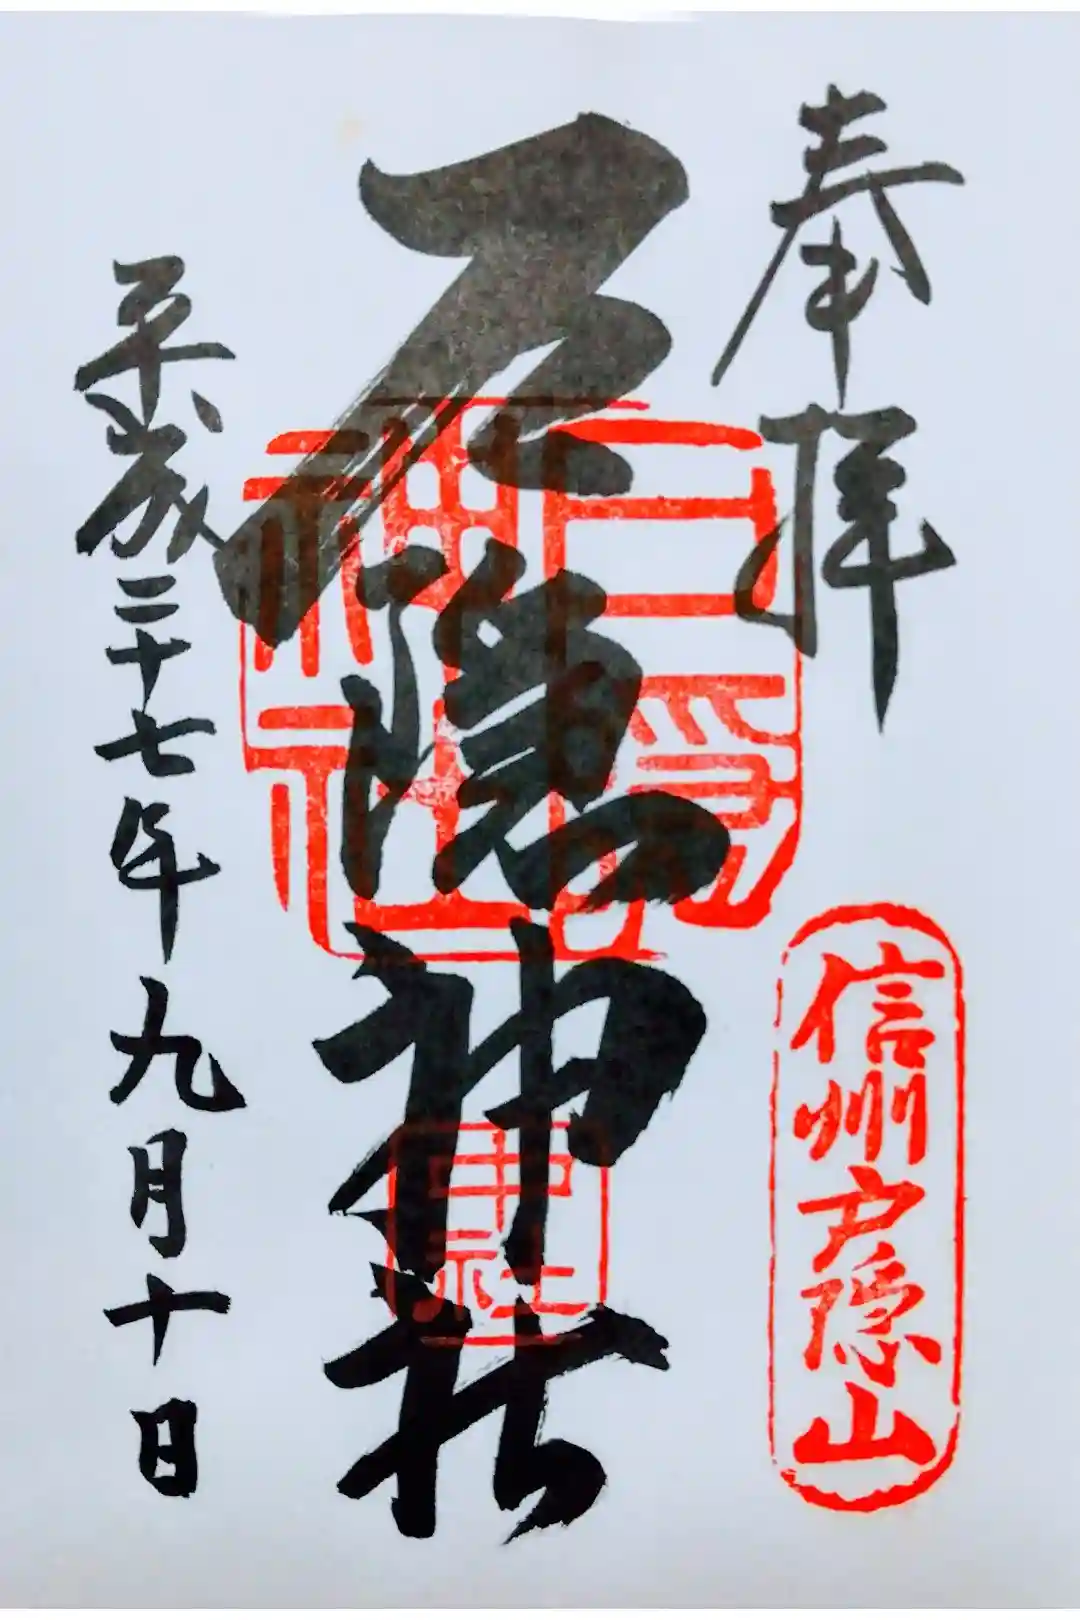 奉拝
信州戸隠山
戸隠神社
戸隠神社
中社
平成二十七年九月十日